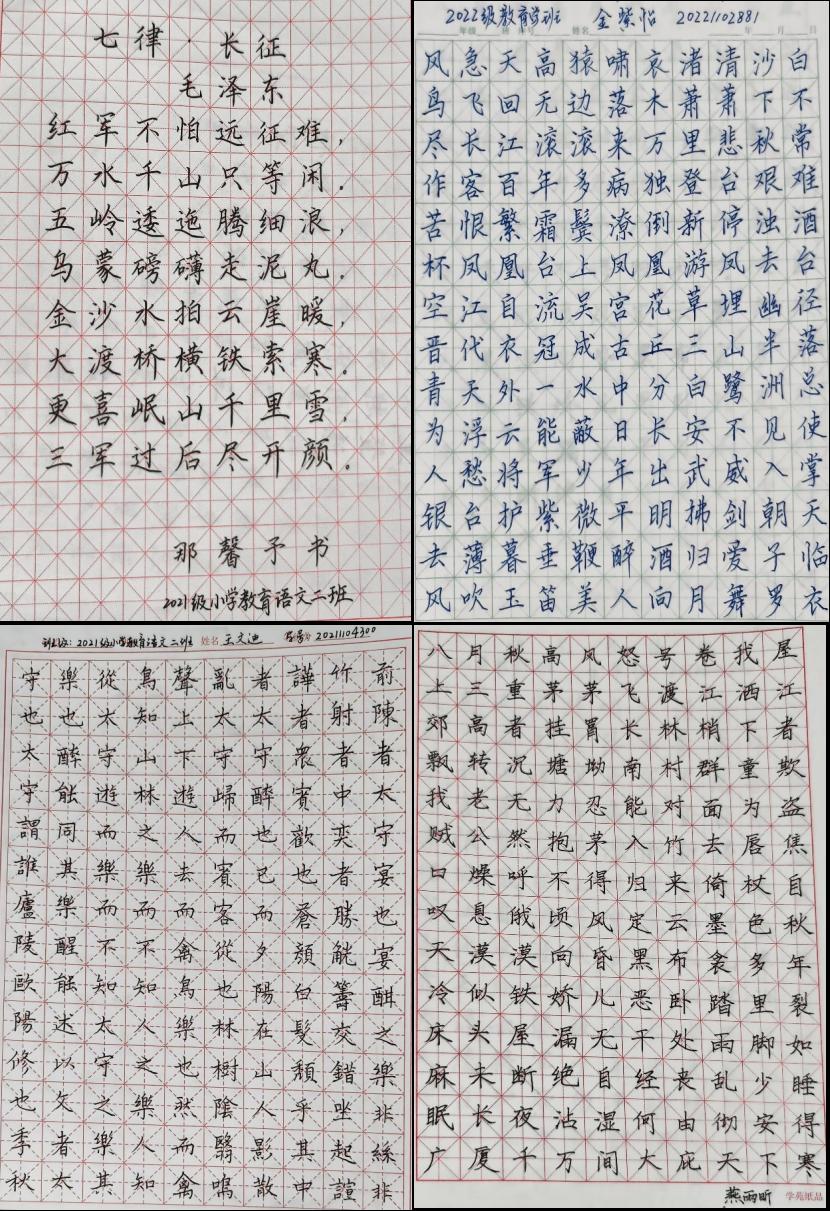 七律·长征
毛泽东
红军不怕远征难，
万水千山只等闲。
五岭逶迤腾细浪，
乌蒙磅礴走泥丸。
金沙水拍云崖暖，
大渡桥横铁索寒。
更喜岷山千里雪，
三军过后尽开颜。
那馨予书
2021级小学教育语文二班
2022级教育学班 金紫怡 20221102881
年 月 日
风急天高猿啸哀渚清沙白
鸟飞回无边落木萧萧下不
尽长江滚滚来万里悲秋常
作客百年多病独登台艰难
苦恨繁霜鬓潦倒新停浊酒
杯凤凰台上凤凰游凤去台
空江自流吴宫花草埋幽径
晋代衣冠成古丘三山半落
青天外一水中分白鹭洲总
为浮云能蔽日长安不见使
人愁将军少年出武威入掌
银台护紫微平明拂剑朝天
去薄暮垂鞭醉酒归爱子临
风吹玉笛美人向月舞罗衣
班级：2021级小学教育语文二班 姓名 王文迪 学号 20211104300
前陳者太守宴也宴酣之樂非絲非
竹射者中奕者勝觥籌交錯坐起諠
譁者衆賓歡也蒼顏白髮頹乎其中
者太守醉也已而夕陽在山人影散
亂太守歸而賓客從也林樹陰翳鳴
聲上下遊人去而禽鳥樂也然而禽
鳥知山林之樂而不知人之樂人知
從太守遊而樂而不知太守之樂其
樂也醉能同其樂醒能述以文者太
守也太守謂誰廬陵歐陽修也季秋
八月秋高风怒号卷我屋
上三重茅茅飞渡江洒江
郊高者挂罥长林梢下者
飘转沉塘坳南村群童欺
我老无力忍能对面为盗
贼公然抱茅入竹去唇焦
口燥呼不得归来倚杖自
叹息俄顷风定云墨色秋
天漠漠向昏黑布衾多年
冷似铁娇儿恶卧踏里裂
床头屋漏无干处雨脚如
麻未断绝自经丧乱少睡
眠长夜沾湿何由彻安得
广厦千万间大庇天下寒
燕雨昕 学苑纸品